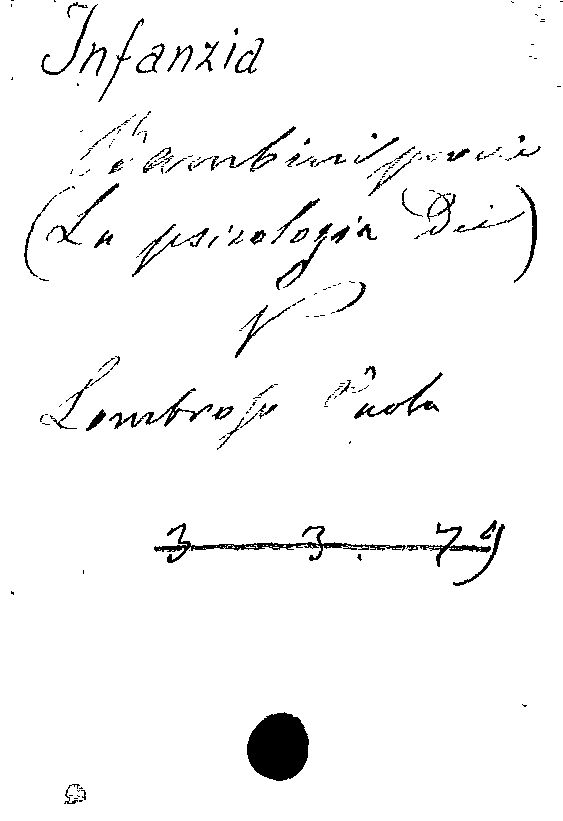 Infanzia
Bambini poveri
(La psicologia Dei)
V
Lombroso Paola
3 3. 79